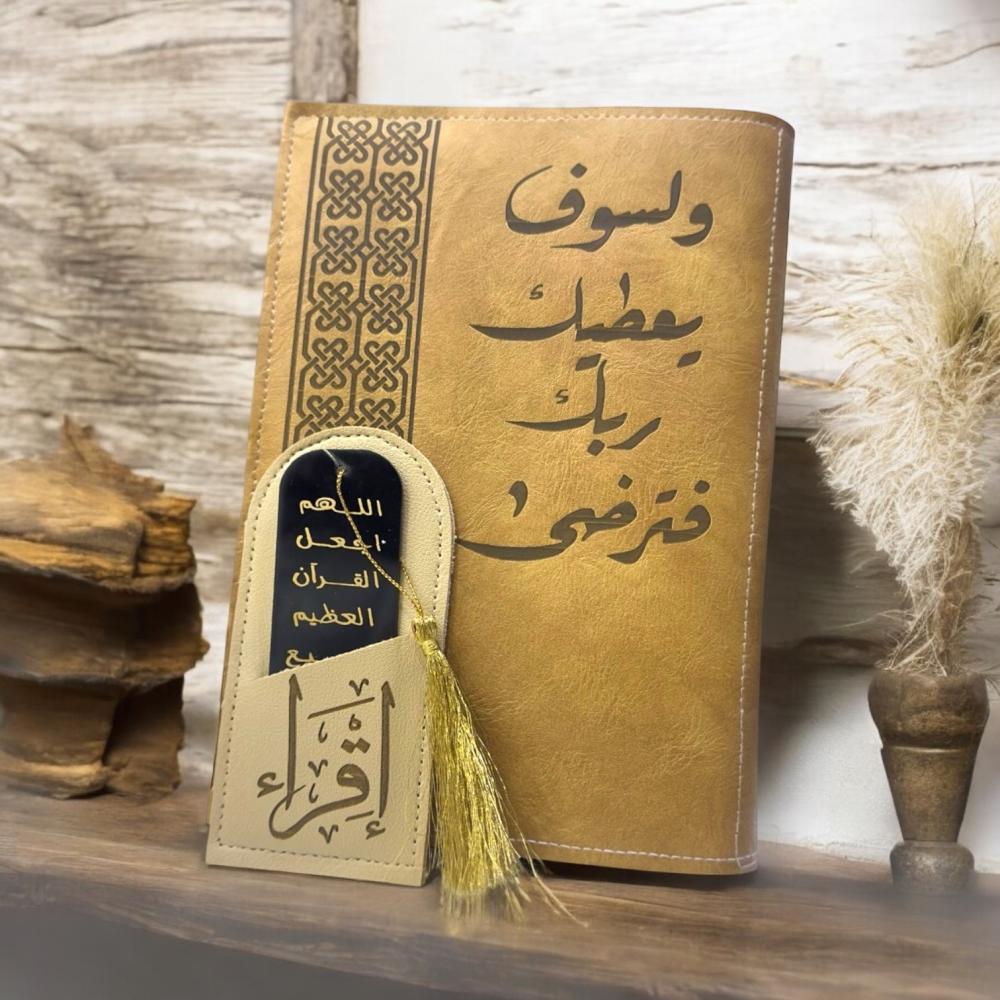 ولسوف
يعطيك
ربك
فترضى
اللهم
اجعل
القرآن
العظيم
إقرأ